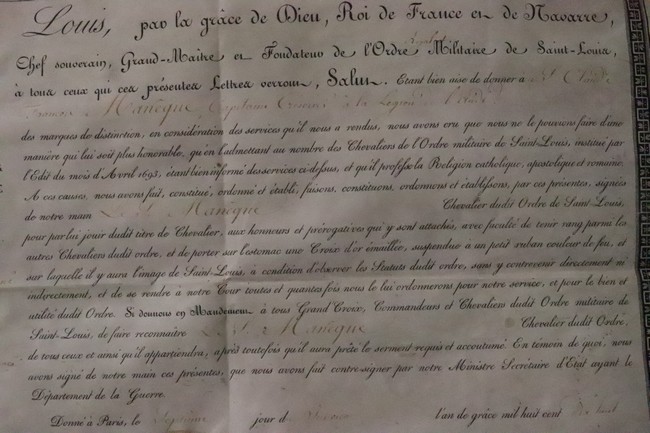 Louis, par la grâce de Dieu, Roi de France et de Navarre,
Chef souverain, Grand-Maître et Fondateur de l'Ordre Royal et Militaire de Saint-Louis,
à tous ceux qui ces présentes Lettres verront, Salut. Etant bien aise de donner à S. Claude
François Manèque Capitaine à la Légion
des marques de distinction, en considération des services qu'il nous a rendus, nous avons cru que nous ne le pouvions faire d'une
manière qui lui soit plus honorable, qu'en l'admettant au nombre des Chevaliers de l'Ordre militaire de Saint-Louis, institué par
l'Edit du mois d'Avril 1693, étant bien informé des services ci-dessus, et qu'il professe la Religion catholique, apostolique et romaine.
A ces causes, nous avons fait, constitué, ordonné et établi, faisons, constituons, ordonnons et établissons, par ces présentes, signées
de notre main L. S. Manèque Chevalier dudit Ordre de Saint-Louis,
pour par lui jouir dudit titre de Chevalier, aux honneurs et prérogatives qui y sont attachés, avec faculté de tenir rang parmi les
autres Chevaliers dudit ordre, et de porter sur l'estomac une Croix d'or émaillée, suspendue à un petit ruban couleur de feu, et
sur laquelle il y aura l'image de Saint-Louis, à condition d'observer les Statuts dudit ordre, sans y contrevenir directement ni
indirectement, et de se rendre à notre Cour toutes et quantes fois nous le lui ordonnerons pour notre service, et pour le bien et
utilité dudit Ordre. Si donnons en Mandement à tous Grand-Croix, Commandeurs et Chevaliers dudit Ordre militaire de
Saint-Louis, de faire reconnaître L. S. Manèque Chevalier dudit Ordre,
de tous ceux et ainsi qu'il appartiendra, après toutefois qu'il aura prêté le serment requis et accoutumé. En témoin de quoi, nous
avons signé de notre main ces présentes, que nous avons fait contre-signer par notre Ministre Secrétaire d'Etat ayant le
Département de la Guerre.
Donné à Paris, le Septième jour d l'an de grâce mil huit cent